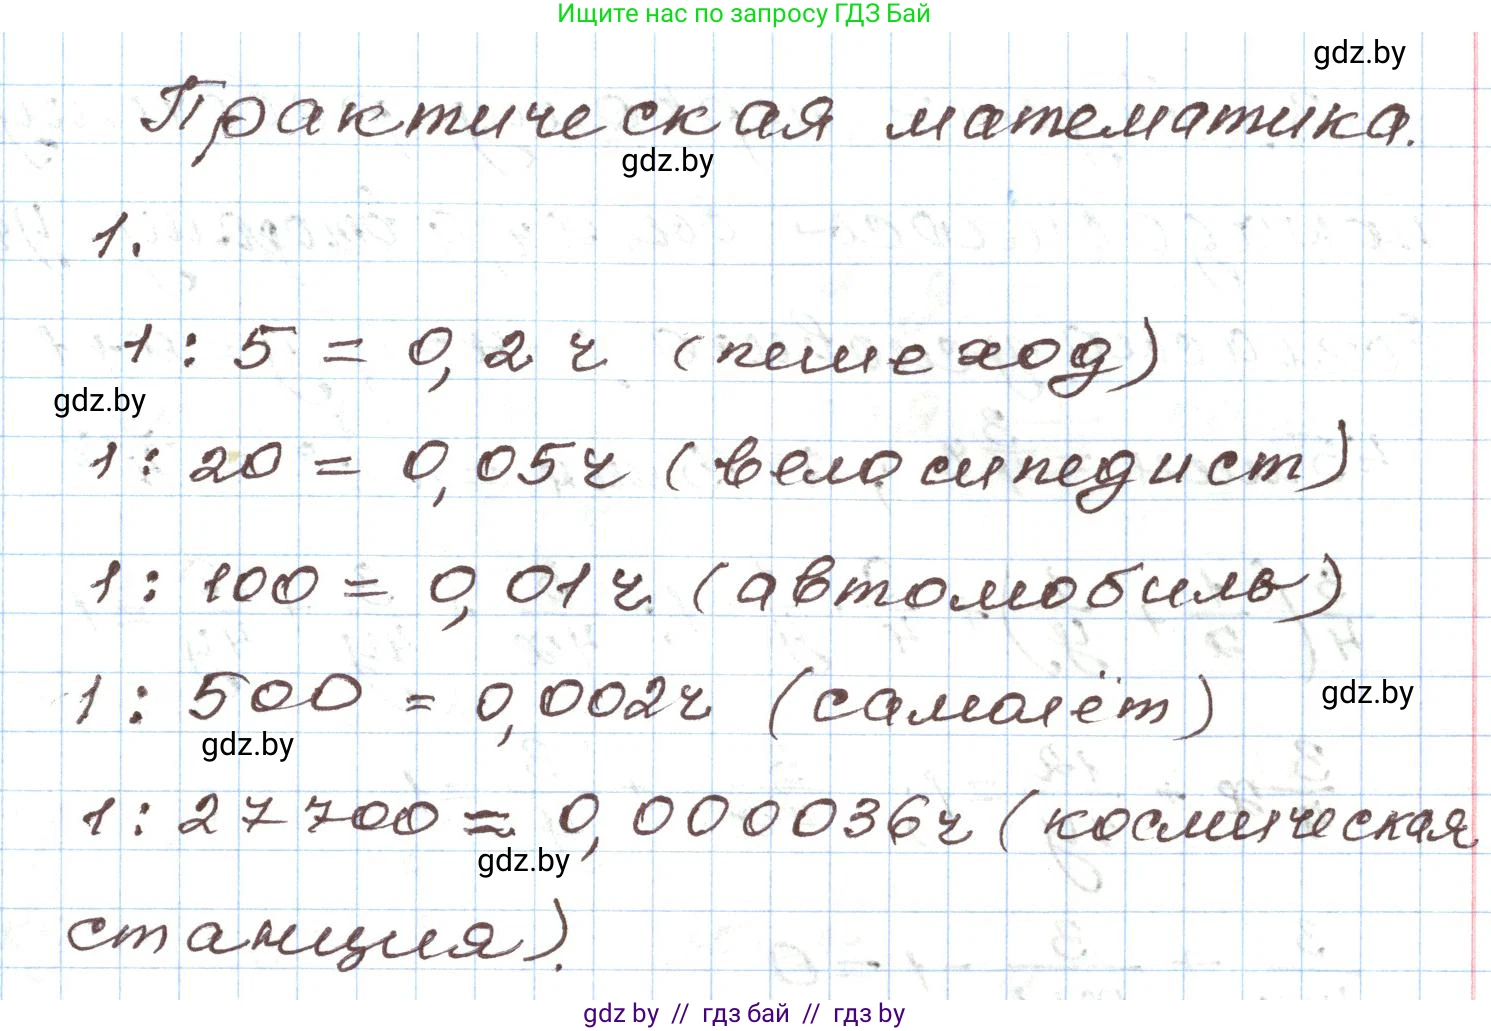 Ищите нас по запросу ГДЗ Бай
gdz.by
Практическая математика.
gdz.by
1.
1 : 5 = 0,2 ч (пешеход)
gdz.by
1 : 20 = 0,05 ч (велосипедист)
1 : 100 = 0,01 ч (автомобиль)
1 : 500 = 0,002 ч (самолёт)
gdz.by
gdz.by
1 : 27 700 ≈ 0,000036 ч (космическая
gdz.by
станция).
gdz.by // гдз бай // гдз by